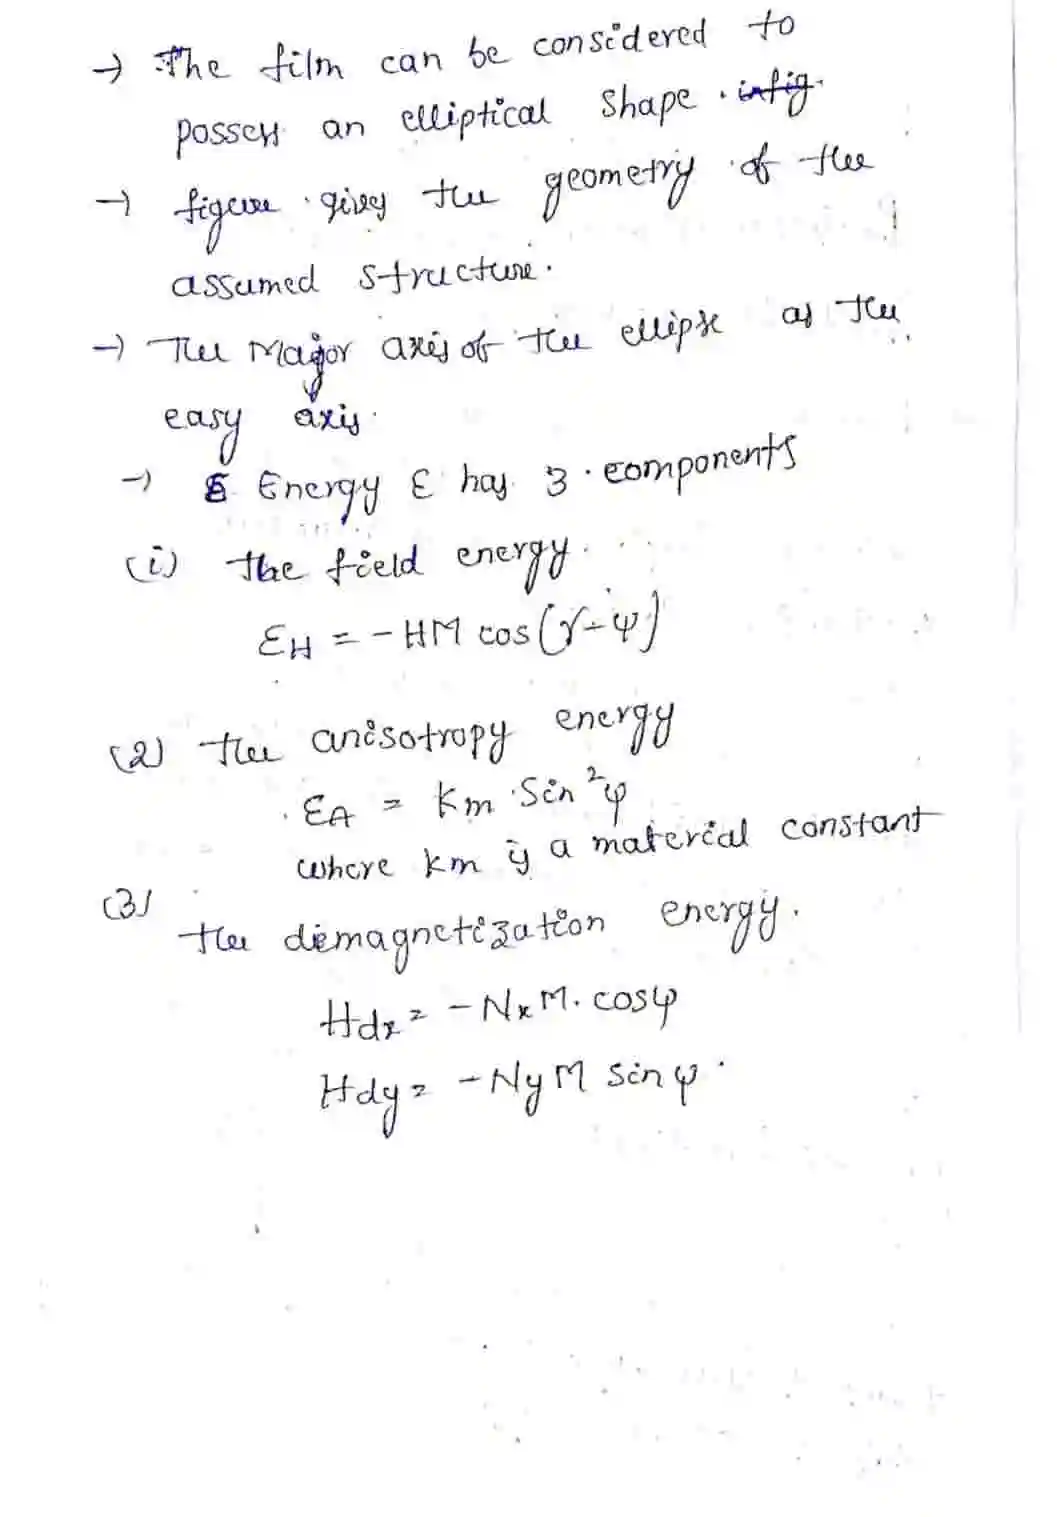 → The film can be considered to
possess an elliptical shape. infig.
→ figure gives the geometry of the
assumed structure.
→ The Major axis of the ellipse as the
easy axis.
→ Energy E has 3 components
(i) the field energy.
EH = - HM cos(γ-ψ)
(2) the anisotropy energy
EA = km Sin²ψ
where km is a material constant
(3)
the demagnetization energy.
Hdx = - NxM. cosψ
Hdy = - NyM sinψ.